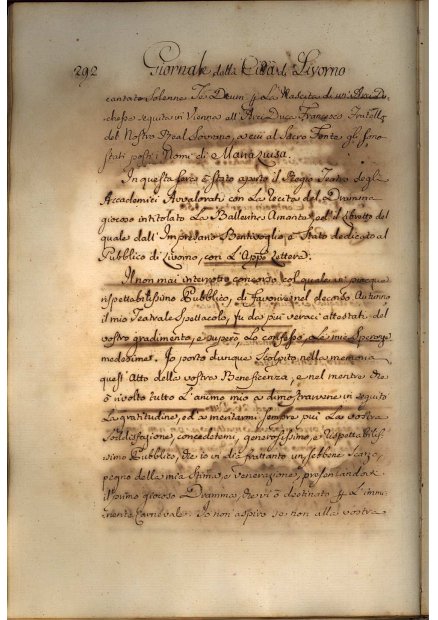 292 Giornale della Città di Livorno
cantato Solenne Te Deum p La Nascita di un' Arci Du-
chessa seguita in Vienna all' Arci Duca Francesco Fratello
del Nostro Real Sovrano, a cui al Sacro Fonte gli sono
stati posti i Nomi di Maria Luisa.
In questa sera è stato aperto il Regio Teatro degli
Accademici Avvalorati con La recita del Dramma
giocoso intitolato La Ballerina Amante, ed il Libretto del
quale dall' Impresario Bentivoglio è stato dedicato al
Pubblico di Livorno, con L' App.a Lettera.
Il non mai interrotto concorso, col quale vi piacque
rispettabilissimo Pubblico, di favorire nel decorso Autunno
il mio Teatrale Spettacolo, fu da più veraci attestati del
vostro gradimento, e superò, Lo confesso, Le mie Speranze
medesime. Io porto dunque Scolpito nella memoria
quest' Atto della vostra Beneficenza, e nel mentre che
è rivolto tutto L' animo mio a dimostrarvene in seguito
La gratitudine, ed a meritarmi sempre più La vostra
Soddisfazione, concedetemi, generosissimo, e rispettabilis-
simo Pubblico, che io vi dia frattanto un, sebbene scarso
pegno della mia stima, e venerazione, presentandovi
il primo giocoso Dramma, che vi è destinato p L' immi-
nente Carnevale. Io non aspiro se non alla vostra